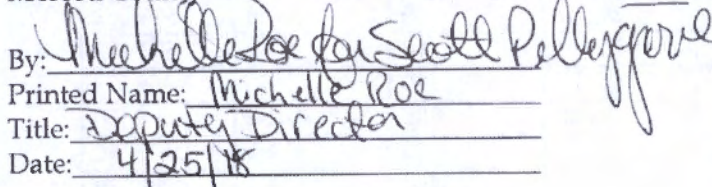 By: Michelle Roe for Scott Pellegrine
Printed Name: Michelle Roe
Title: Deputy Director
Date: 4/25/18